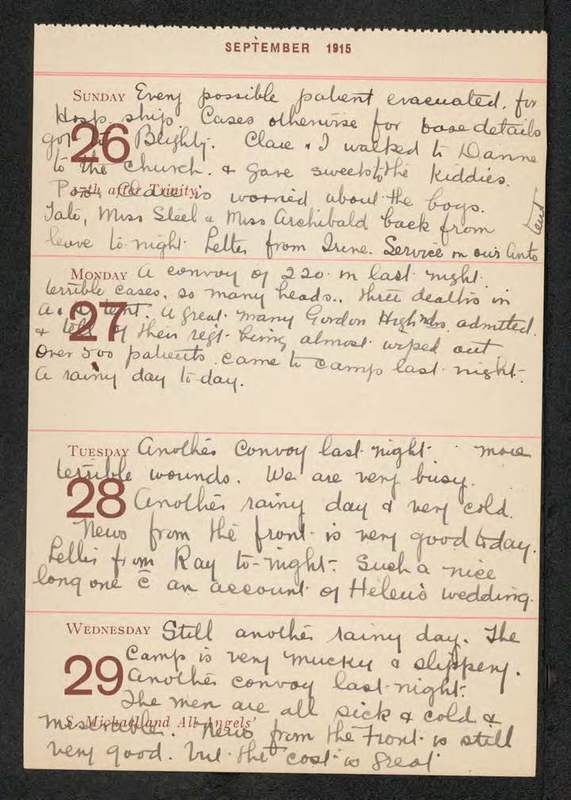 SEPTEMBER 1915
SUNDAY Every possible patient evacuated. for
Hosp. ship. Cases otherwise for base details
26 go to Blighty. Clare & I walked to Danne
to the Church. & gave sweets to the Kiddies.
17th after Trinity
is worried about the boys.
Talo, Miss Steel & Miss Archibald back from
leave to-night. Letter from Irene. Service in our Ante
tent
MONDAY A convoy of 220 in last night.
terrible cases. so many heads.. three deaths in
27 A great many Gordon Highldrs. admitted.
& tell of their regt. being almost wiped out.
Over 500 patients came to camp last night.
A rainy day to-day.
TUESDAY Another Convoy last night. more
terrible wounds. We are very busy.
28 Another rainy day & very cold.
News from the front is very good today.
Letter from Ray to-night. Such a nice
long one c̄ an account of Helen's wedding.
WEDNESDAY Still another rainy day. The
Camp is very mucky & slippery.
29 Another convoy last night.
The men are all sick & cold &
S. Michael and All Angels'
miserable. News from the Front is still
very good. but the cost is great